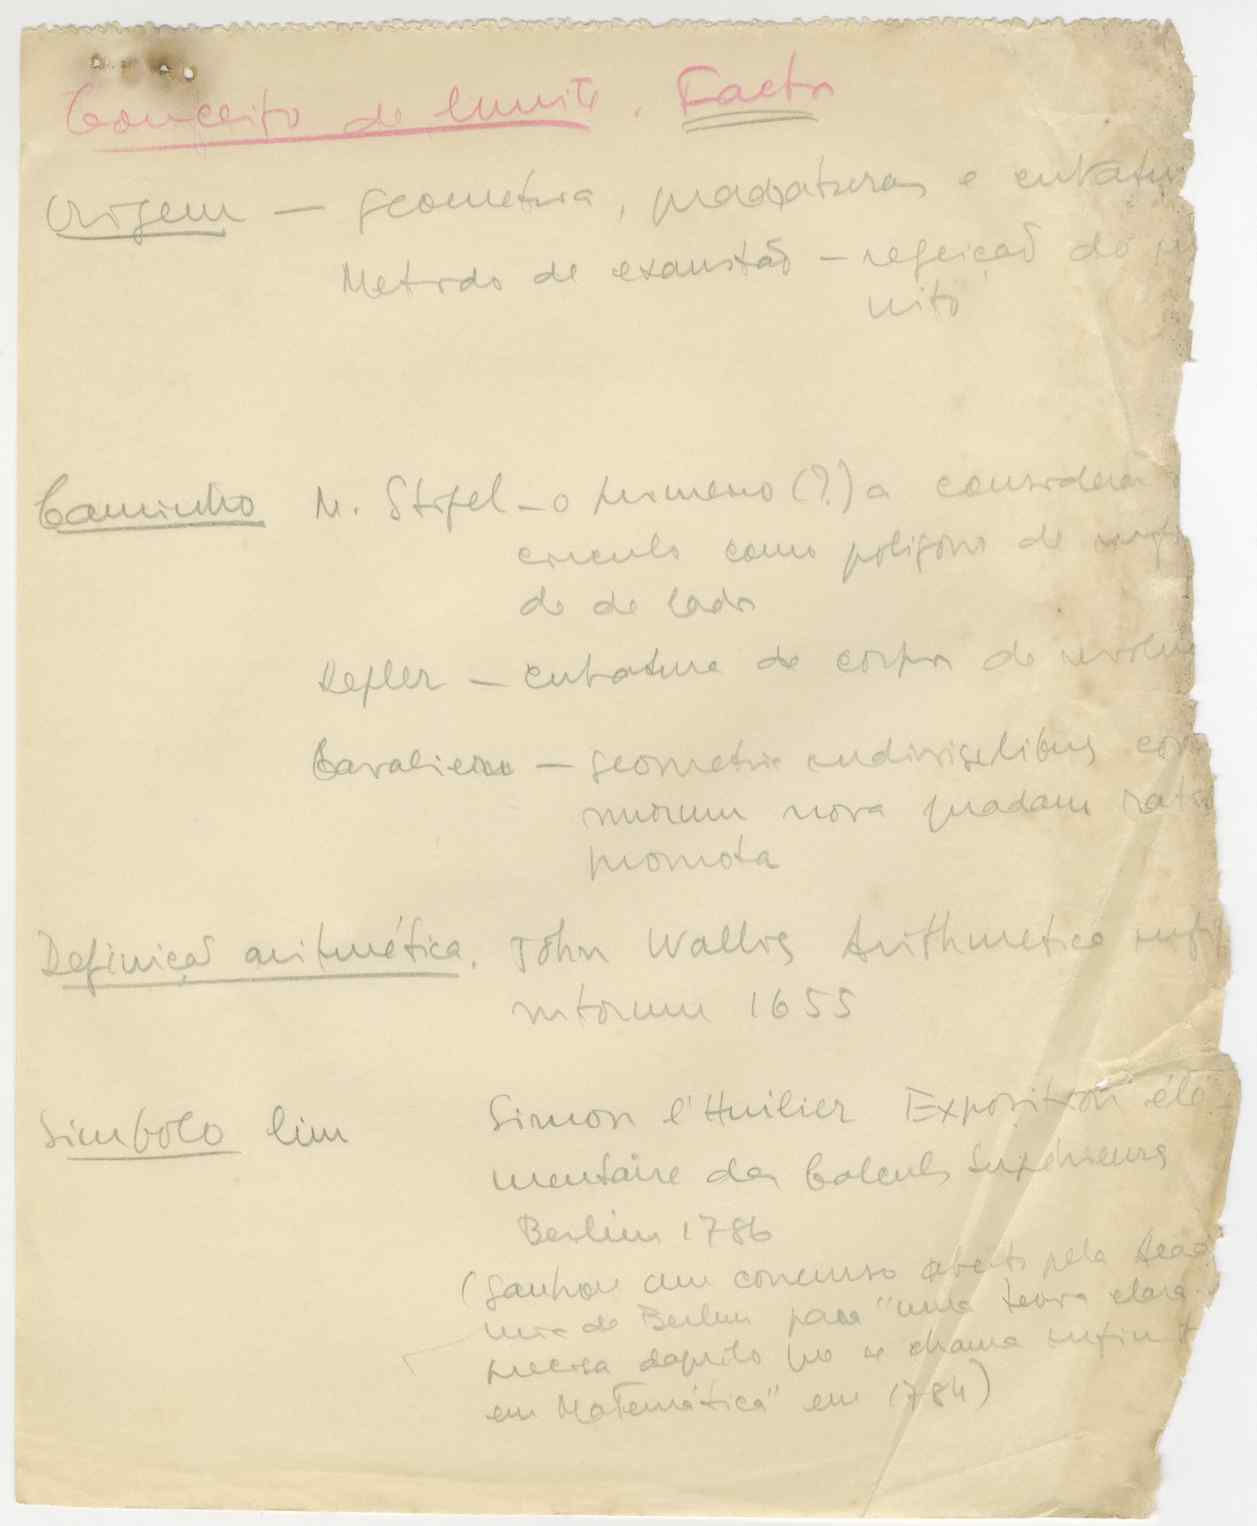 Conceito de limite. Factos
Origem — geometria, quadraturas e cubatu
Metodo de exaustão — rejeição do infi
nito
Caminho M. Stifel — o primeiro (?) a considerar o
circulo como poligono de infi
do de lados
Kepler — cubatura de corpos de revolu
Cavalieri — geometria indivisibilibus con
tinuorum nova quadam ratio
promota
Definição aritmética. John Wallis Arithmetica infi
nitorum 1655
Simbolo lim Simon l'Huilier Exposition élé-
mentaire des Calculs Supérieurs
Berlim 1786
(ganhou um concurso aberto pela Acad
mia de Berlim para "uma teoria clara e
precisa daquilo que se chama infinito
em Matemática" em 1784)